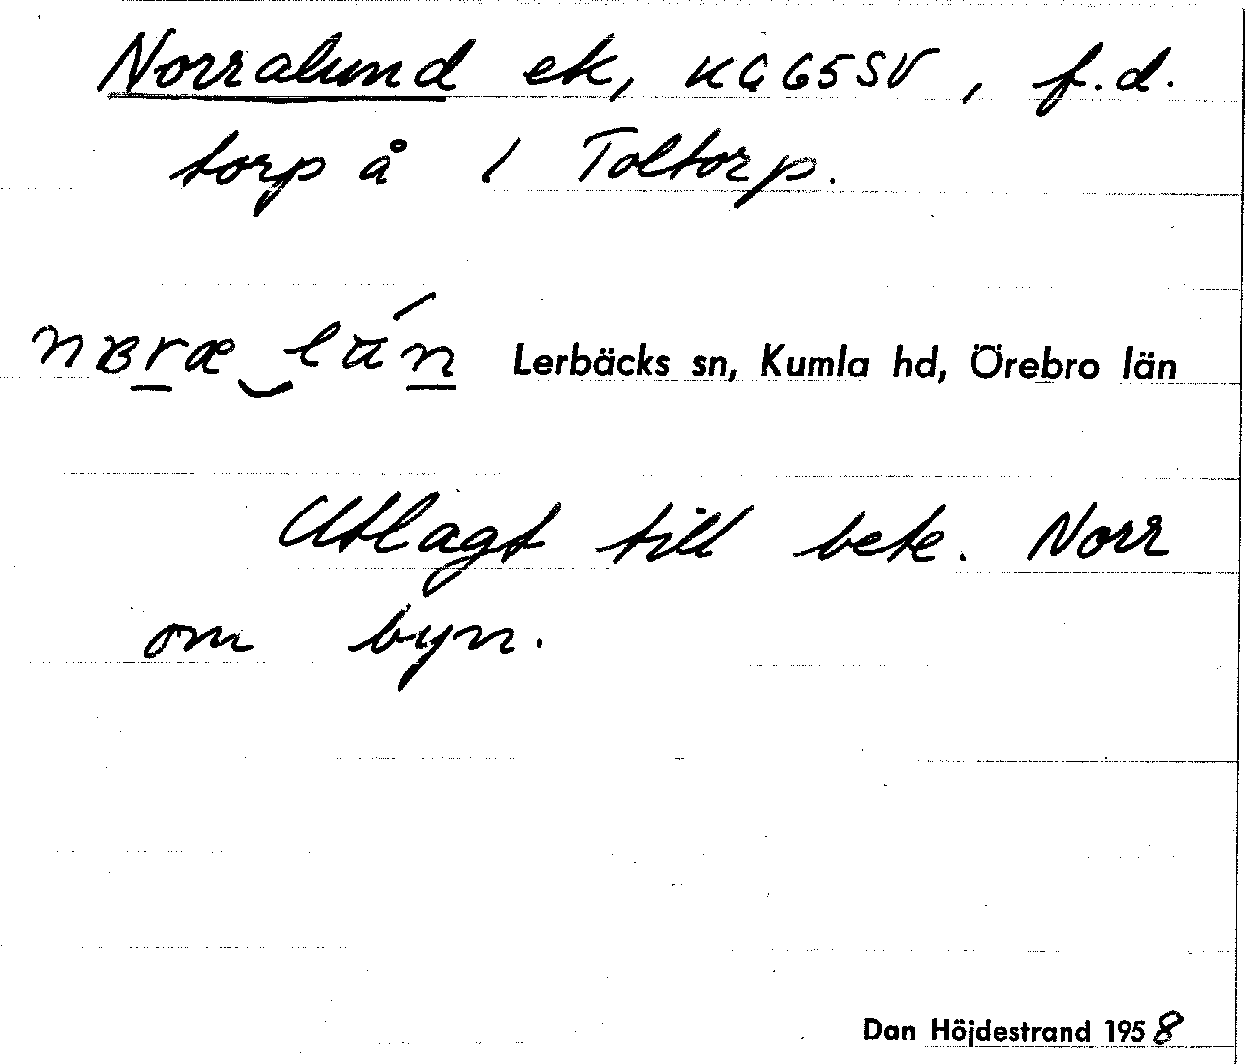 Norralund ek, KG65SV, f.d.
torp å 1 Toltorp.
Lerbäcks sn, Kumla hd, Örebro län
Utlagt till bete. Norr
om byn.
Dan Höjdestrand 1958